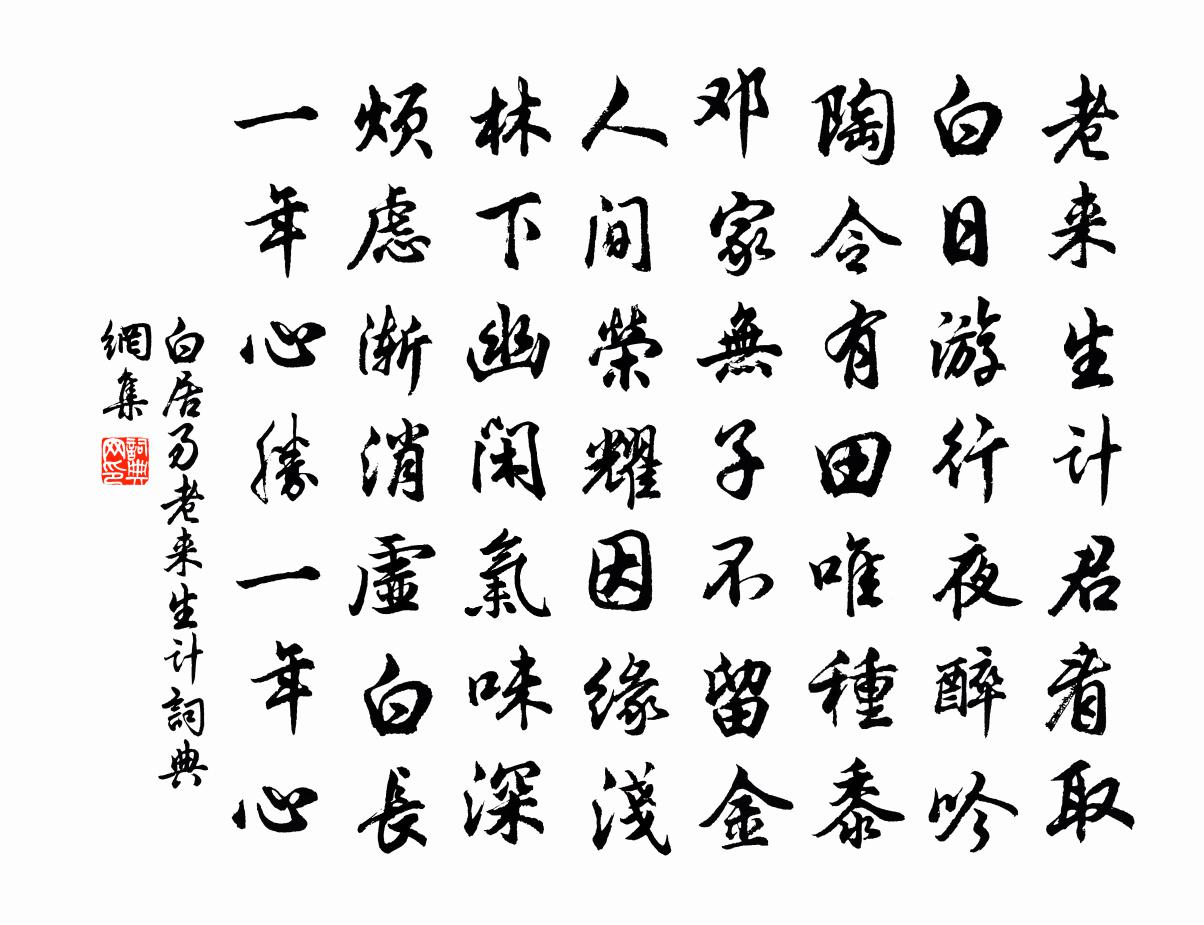 老来生计君看取
白日游行夜醉吟
陶令有田唯種黍
邓家無子不留金
人间榮耀因缘淺
林下幽闲氣味深
烦虑渐消虚白長
一年心勝一年心
白居易老来生计詞典
網集
詞典
网印